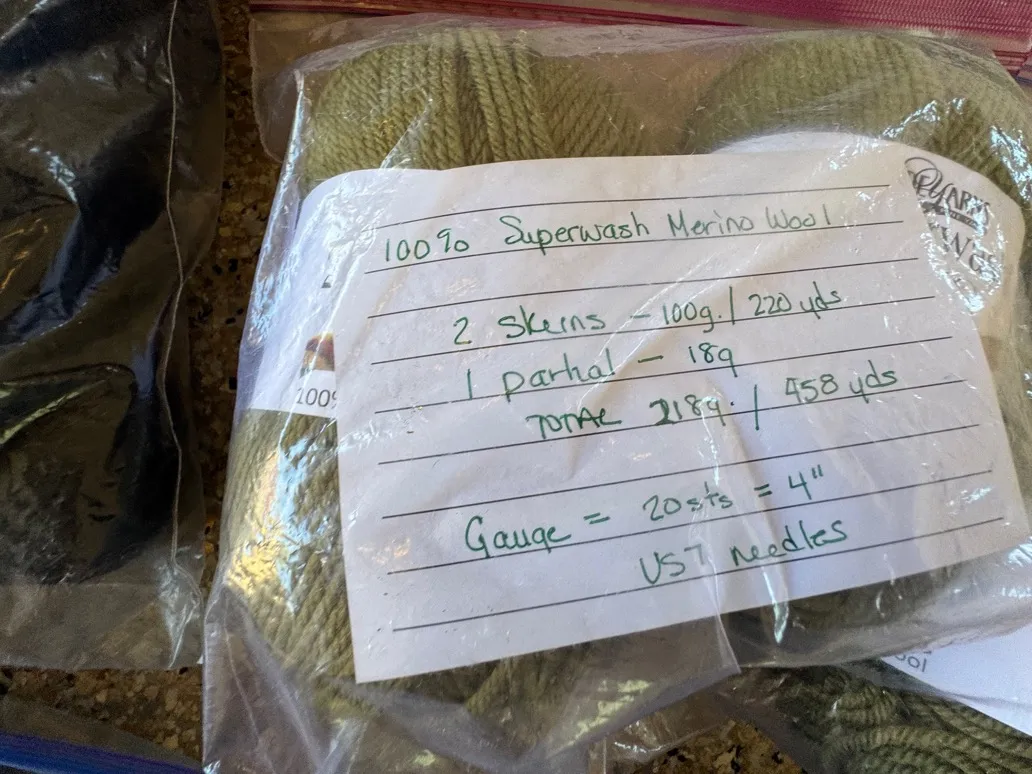 100% Superwash Merino Wool
2 Skeins - 100g. / 220 yds
1 partial - 18g
TOTAL 218g. / 458 yds
Gauge = 20sts = 4"
US7 needles
YARNS
100%